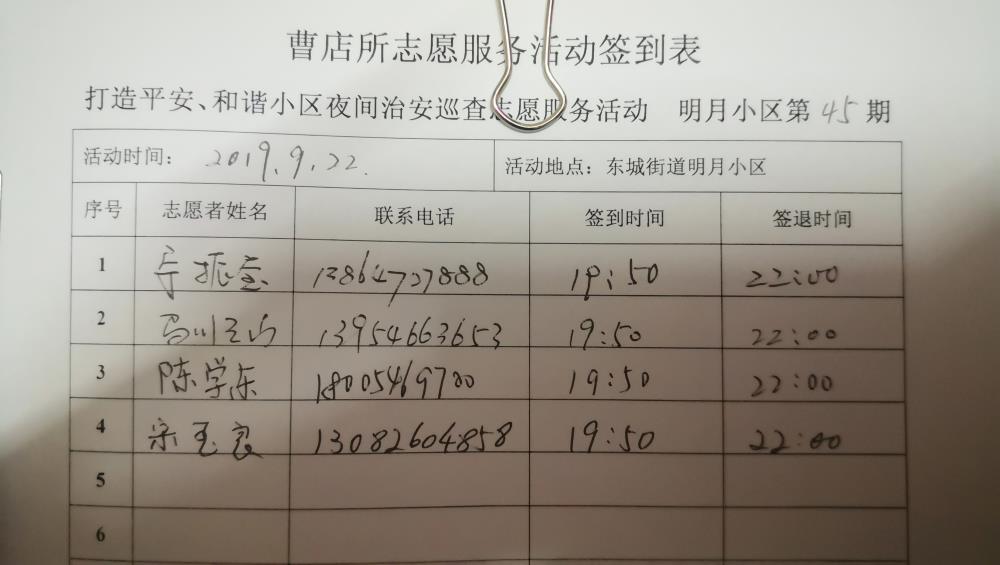 曹店所志愿服务活动签到表
打造平安、和谐小区夜间治安巡查志愿服务活动 明月小区第 45 期
活动时间： 2019.9.22. 活动地点：东城街道明月小区
序号 志愿者姓名 联系电话 签到时间 签退时间
1 振 13864707888 19:50 22:00
2 13954663653 19:50 22:00
3 陈学东 18005469700 19:50 22:00
4 宋玉良 13082604858 19:50 22:00
5
6